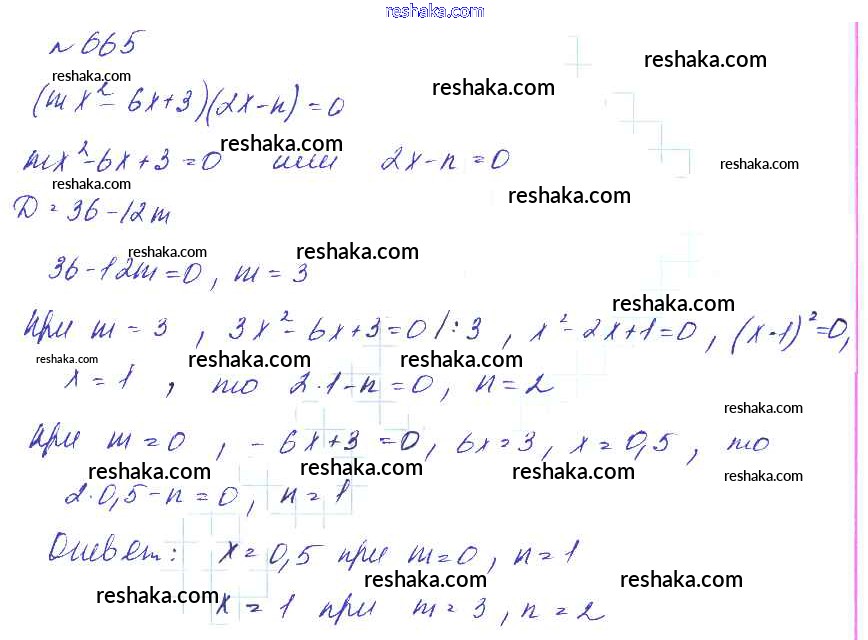 reshaka.com
№ 665
reshaka.com
reshaka.com
reshaka.com
(mx² - 6x + 3)(2x - n) = 0
reshaka.com
mx² - 6x + 3 = 0 или 2x - n = 0
reshaka.com
reshaka.com
reshaka.com
D = 36 - 12m
reshaka.com
reshaka.com
36 - 12m = 0, m = 3
reshaka.com
при m = 3, 3x² - 6x + 3 = 0 / : 3, x² - 2x + 1 = 0, (x - 1)² = 0,
reshaka.com
reshaka.com
reshaka.com
x = 1, то 2·1 - n = 0, n = 2
reshaka.com
при m = 0, -6x + 3 = 0, 6x = 3, x = 0,5, то
reshaka.com
reshaka.com
reshaka.com
reshaka.com
2·0,5 - n = 0, n = 1
Ответ: x = 0,5 при m = 0, n = 1
reshaka.com
reshaka.com
reshaka.com
x = 1 при m = 3, n = 2